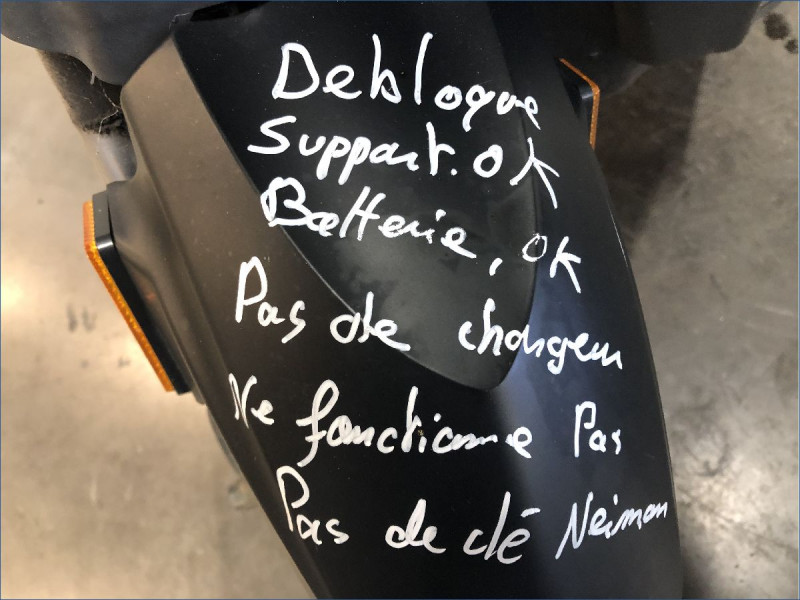 Debloque
Support. OK
Batterie, OK
Pas de chargeur
Ne fonctionne Pas
Pas de clé Neiman